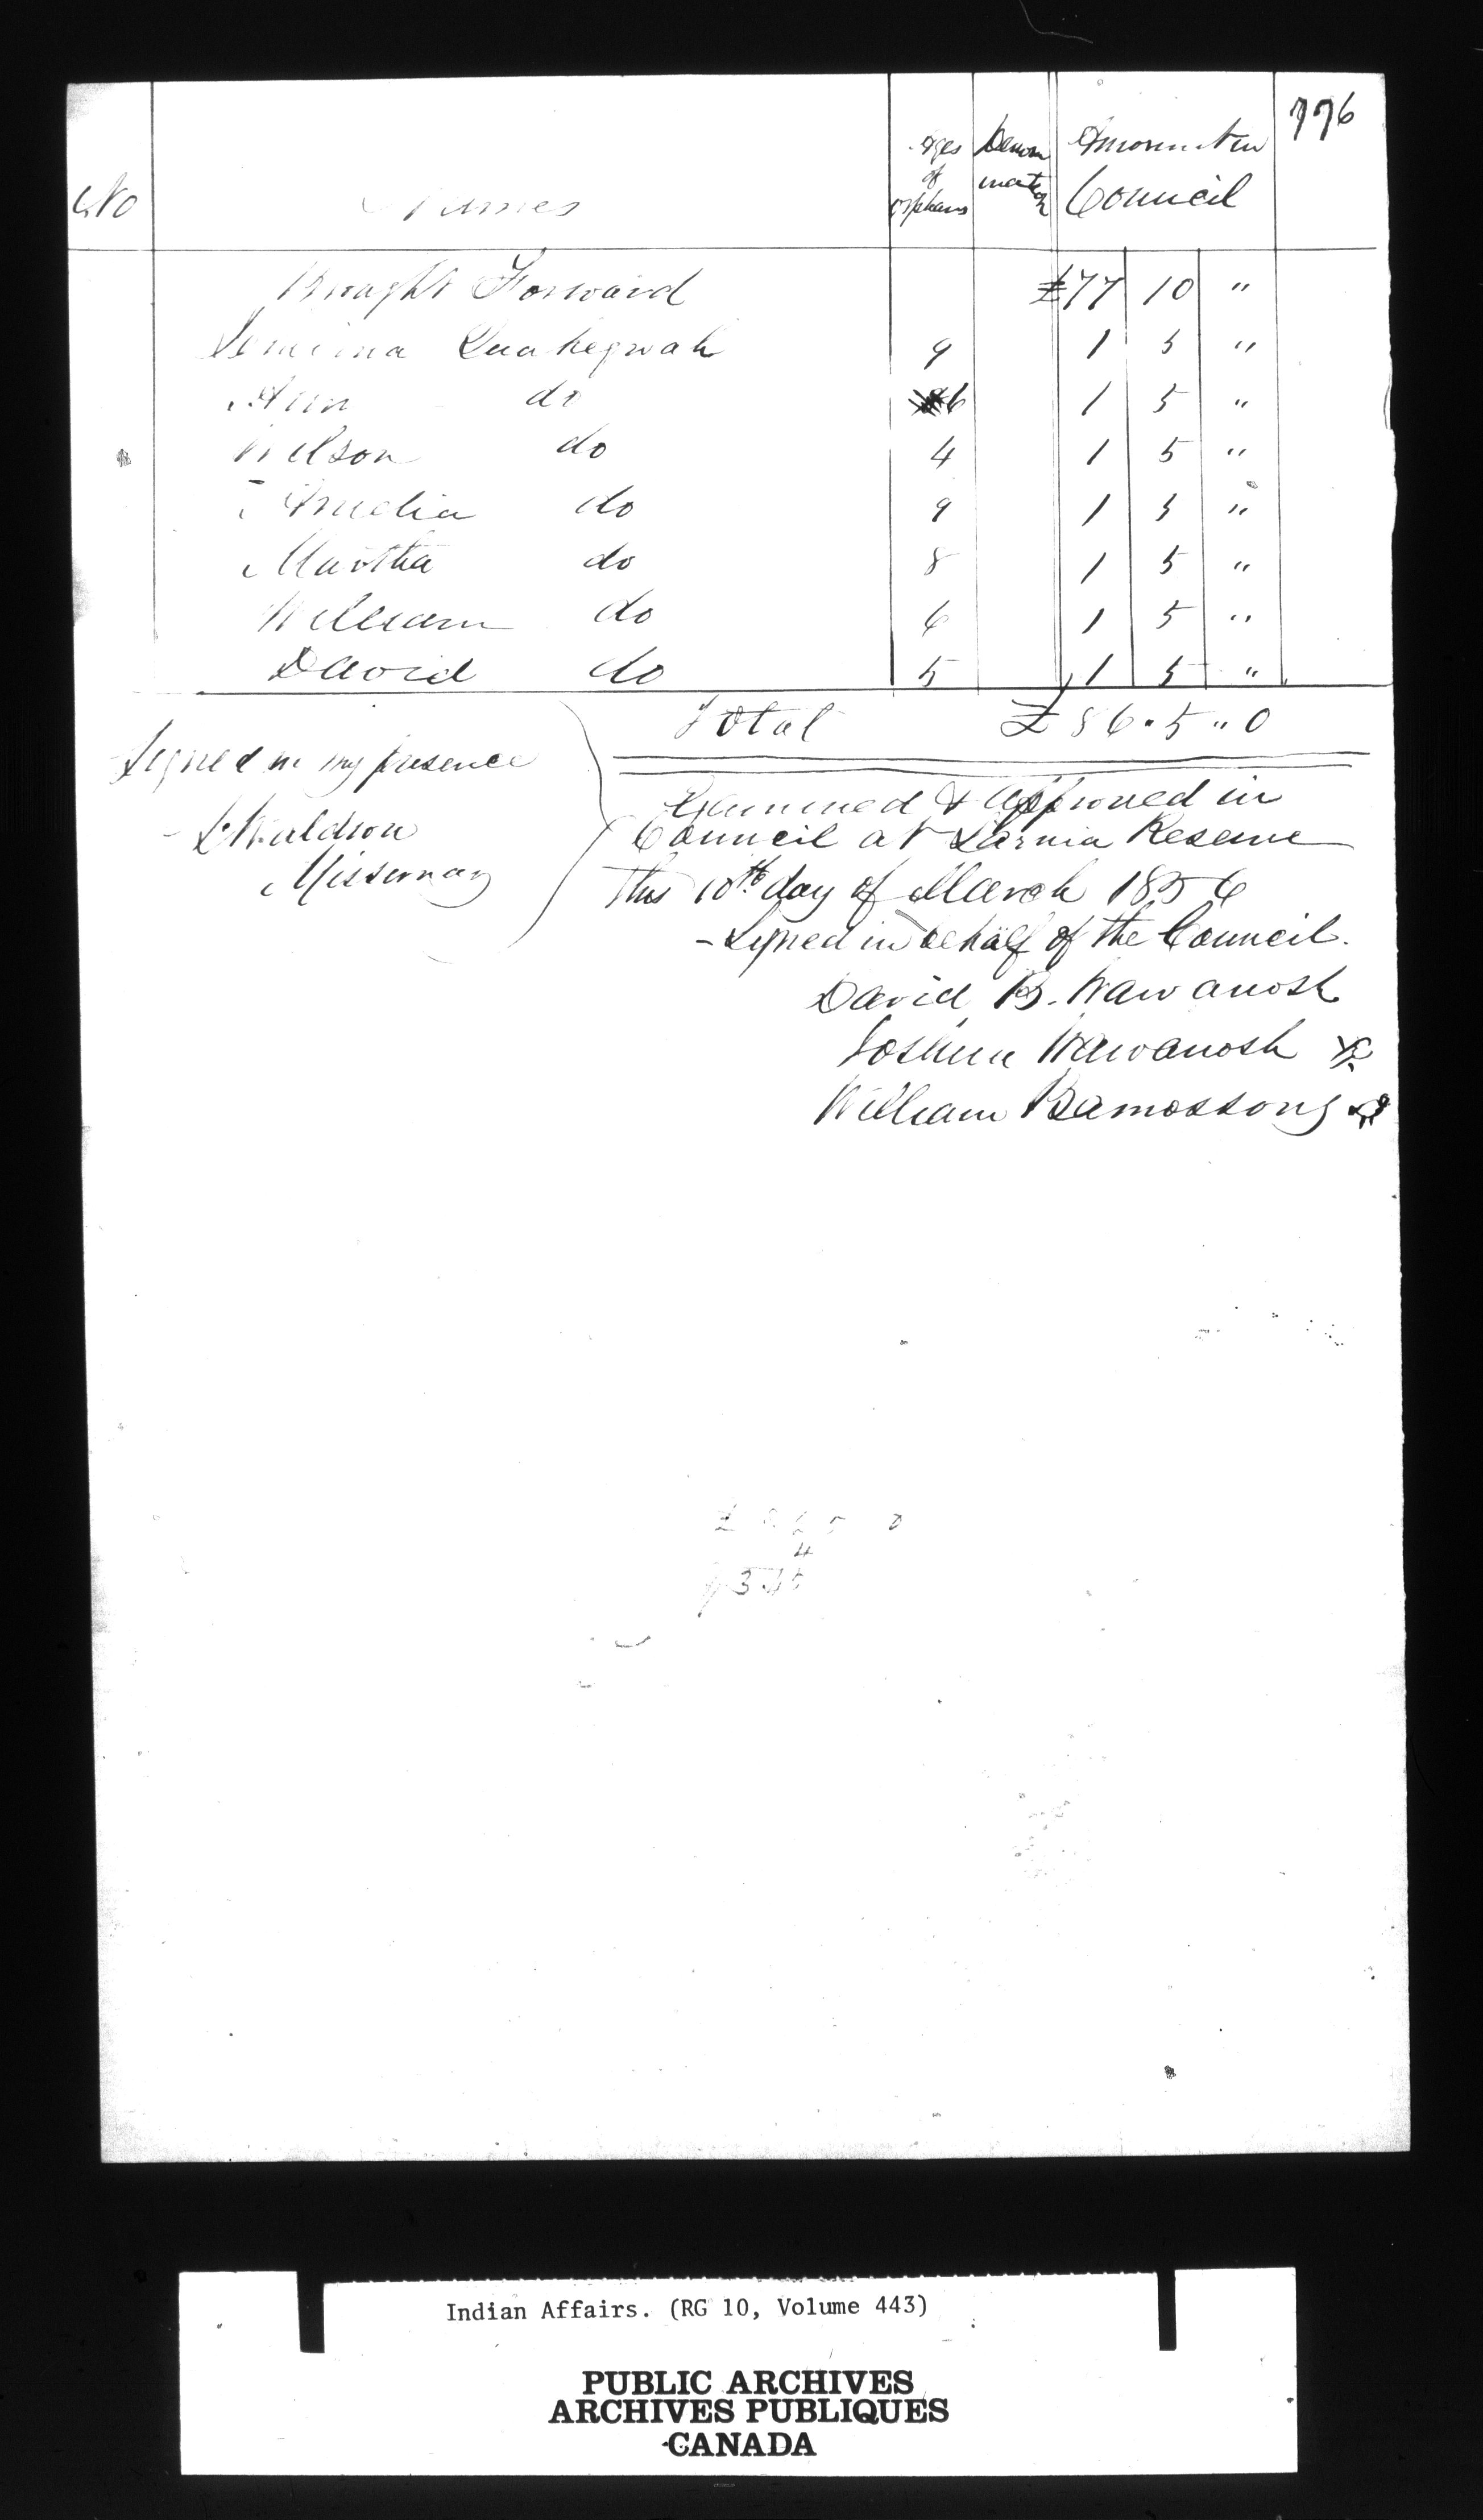 776
No Names Ages of orphans Denomination Amount in Council
Brought Forward £77 10 "
Jemima Quakegwah 9 1 5 "
Ann do 6 1 5 "
Wilson do 4 1 5 "
Amelia do 9 1 5 "
Martha do 8 1 5 "
William do 6 1 5 "
David do 5 1 5 "
Total £86.5"0
Signed in my presence
Waldron
Missionary
Examined & Approved in
Council at Sarnia Reserve
This 10th day of March 1856
- Signed in behalf of the Council.
David B. Wawanosh
Joshua Wawanosh
William Bamossong
£ 5 0
4
345
Indian Affairs. (RG 10, Volume 443)
PUBLIC ARCHIVES
ARCHIVES PUBLIQUES
CANADA